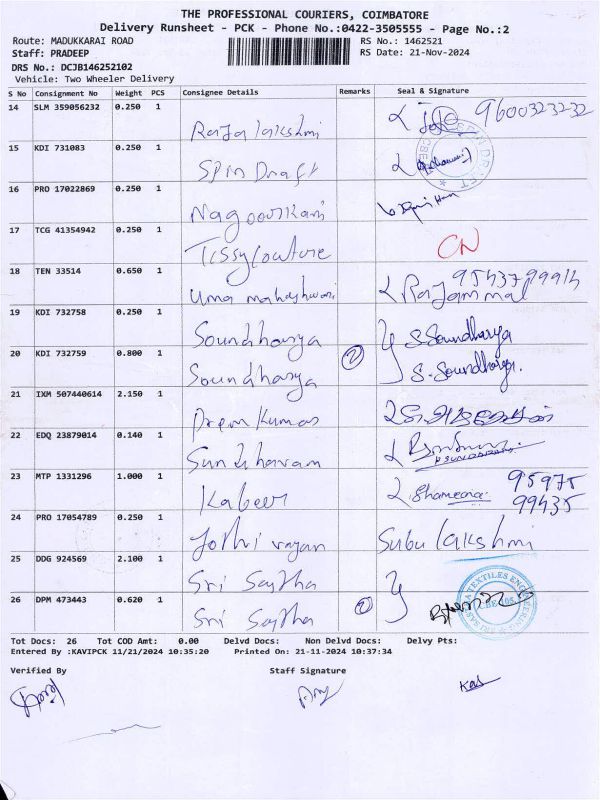 THE PROFESSIONAL COURIERS, COIMBATORE
Delivery Runsheet - PCK - Phone No.:0422-3505555 - Page No.:2
Route: MADUKKARAI ROAD RS No.: 1462521
Staff: PRADEEP RS Date: 21-Nov-2024
DRS No.: DCJB146252102
Vehicle: Two Wheeler Delivery
S No Consignment No Weight PCS Consignee Details Remarks Seal & Signature
14 SLM 359056232 0.250 1 Rajalakshmi 9600323232
15 KDI 731083 0.250 1 Spin Draft
16 PRO 17022869 0.250 1 Nagoorkani
17 TCG 41354942 0.250 1 Tissycouture CN
18 TEN 33514 0.650 1 Uma maheshwari Rajammal
19 KDI 732758 0.250 1 Soundharya S. Soundharya
20 KDI 732759 0.800 1 Soundharya 2 S. Soundharya.
21 IXM 507440614 2.150 1 Prem Kumar
22 EDQ 23879014 0.140 1 Sundharam
23 MTP 1331296 1.000 1 Kabeer Shameena 95975
99435
24 PRO 17054789 0.250 1 Jothi vayan Subu lakshmi
25 DDG 924569 2.100 1 Sri Saytha
26 DPM 473443 0.620 1 Sri Saytha 2
Tot Docs: 26 Tot COD Amt: 0.00 Delvd Docs: Non Delvd Docs: Delvy Pts:
Entered By :KAVIPCK 11/21/2024 10:35:20 Printed On: 21-11-2024 10:37:34
Verified By Staff Signature